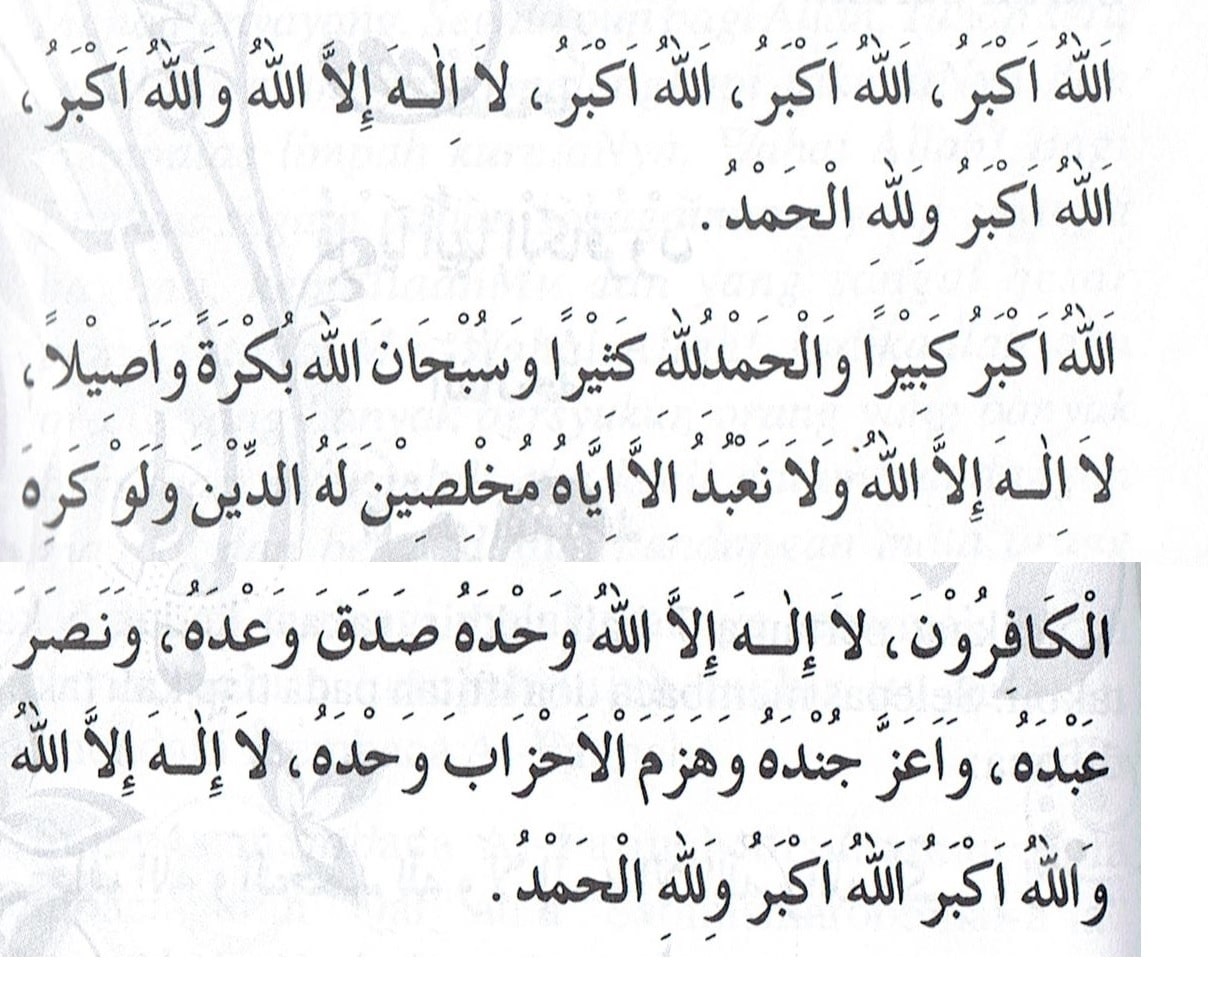 اَللهُ اَكْبَرُ ، اَللهُ اَكْبَرُ ، اَللهُ اَكْبَرُ ، لاَ اِلٰـهَ إِلاَّ اللهُ وَ اَللهُ اَكْبَرُ ،
اَللهُ اَكْبَرُ وَلِلهِ الْحَمْدُ .
اَللهُ اَكْبَرُ كَبِيْرًا وَ الْحَمْدُلِلهِ كَثِيْرًا وَ سُبْحَانَ اللهِ بُكْرَةً وَ اَصِيْلاً ،
لاَ اِلٰـهَ إِلاَّ اللهُ وَ لاَ نَعْبُدُ اِلاَّ اِيَّاهُ مُخْلِصِيْنَ لَهُ الدِّيْنَ وَلَوْ كَرِهَ
الْكَافِرُوْنَ ، لاَ إِلٰـهَ إِلاَّ اللهُ وَحْدَهُ صَدَقَ وَعْدَهُ ، وَنَصَرَ
عَبْدَهُ ، وَاَعَزَّ جُنْدَهُ وَهَزَمَ الْاَحْزَابَ وَحْدَهُ ، لاَ إِلٰـهَ إِلاَّ اللهُ
وَاَللهُ اَكْبَرُ اَللهُ اَكْبَرُ وَلِلهِ الْحَمْدُ .